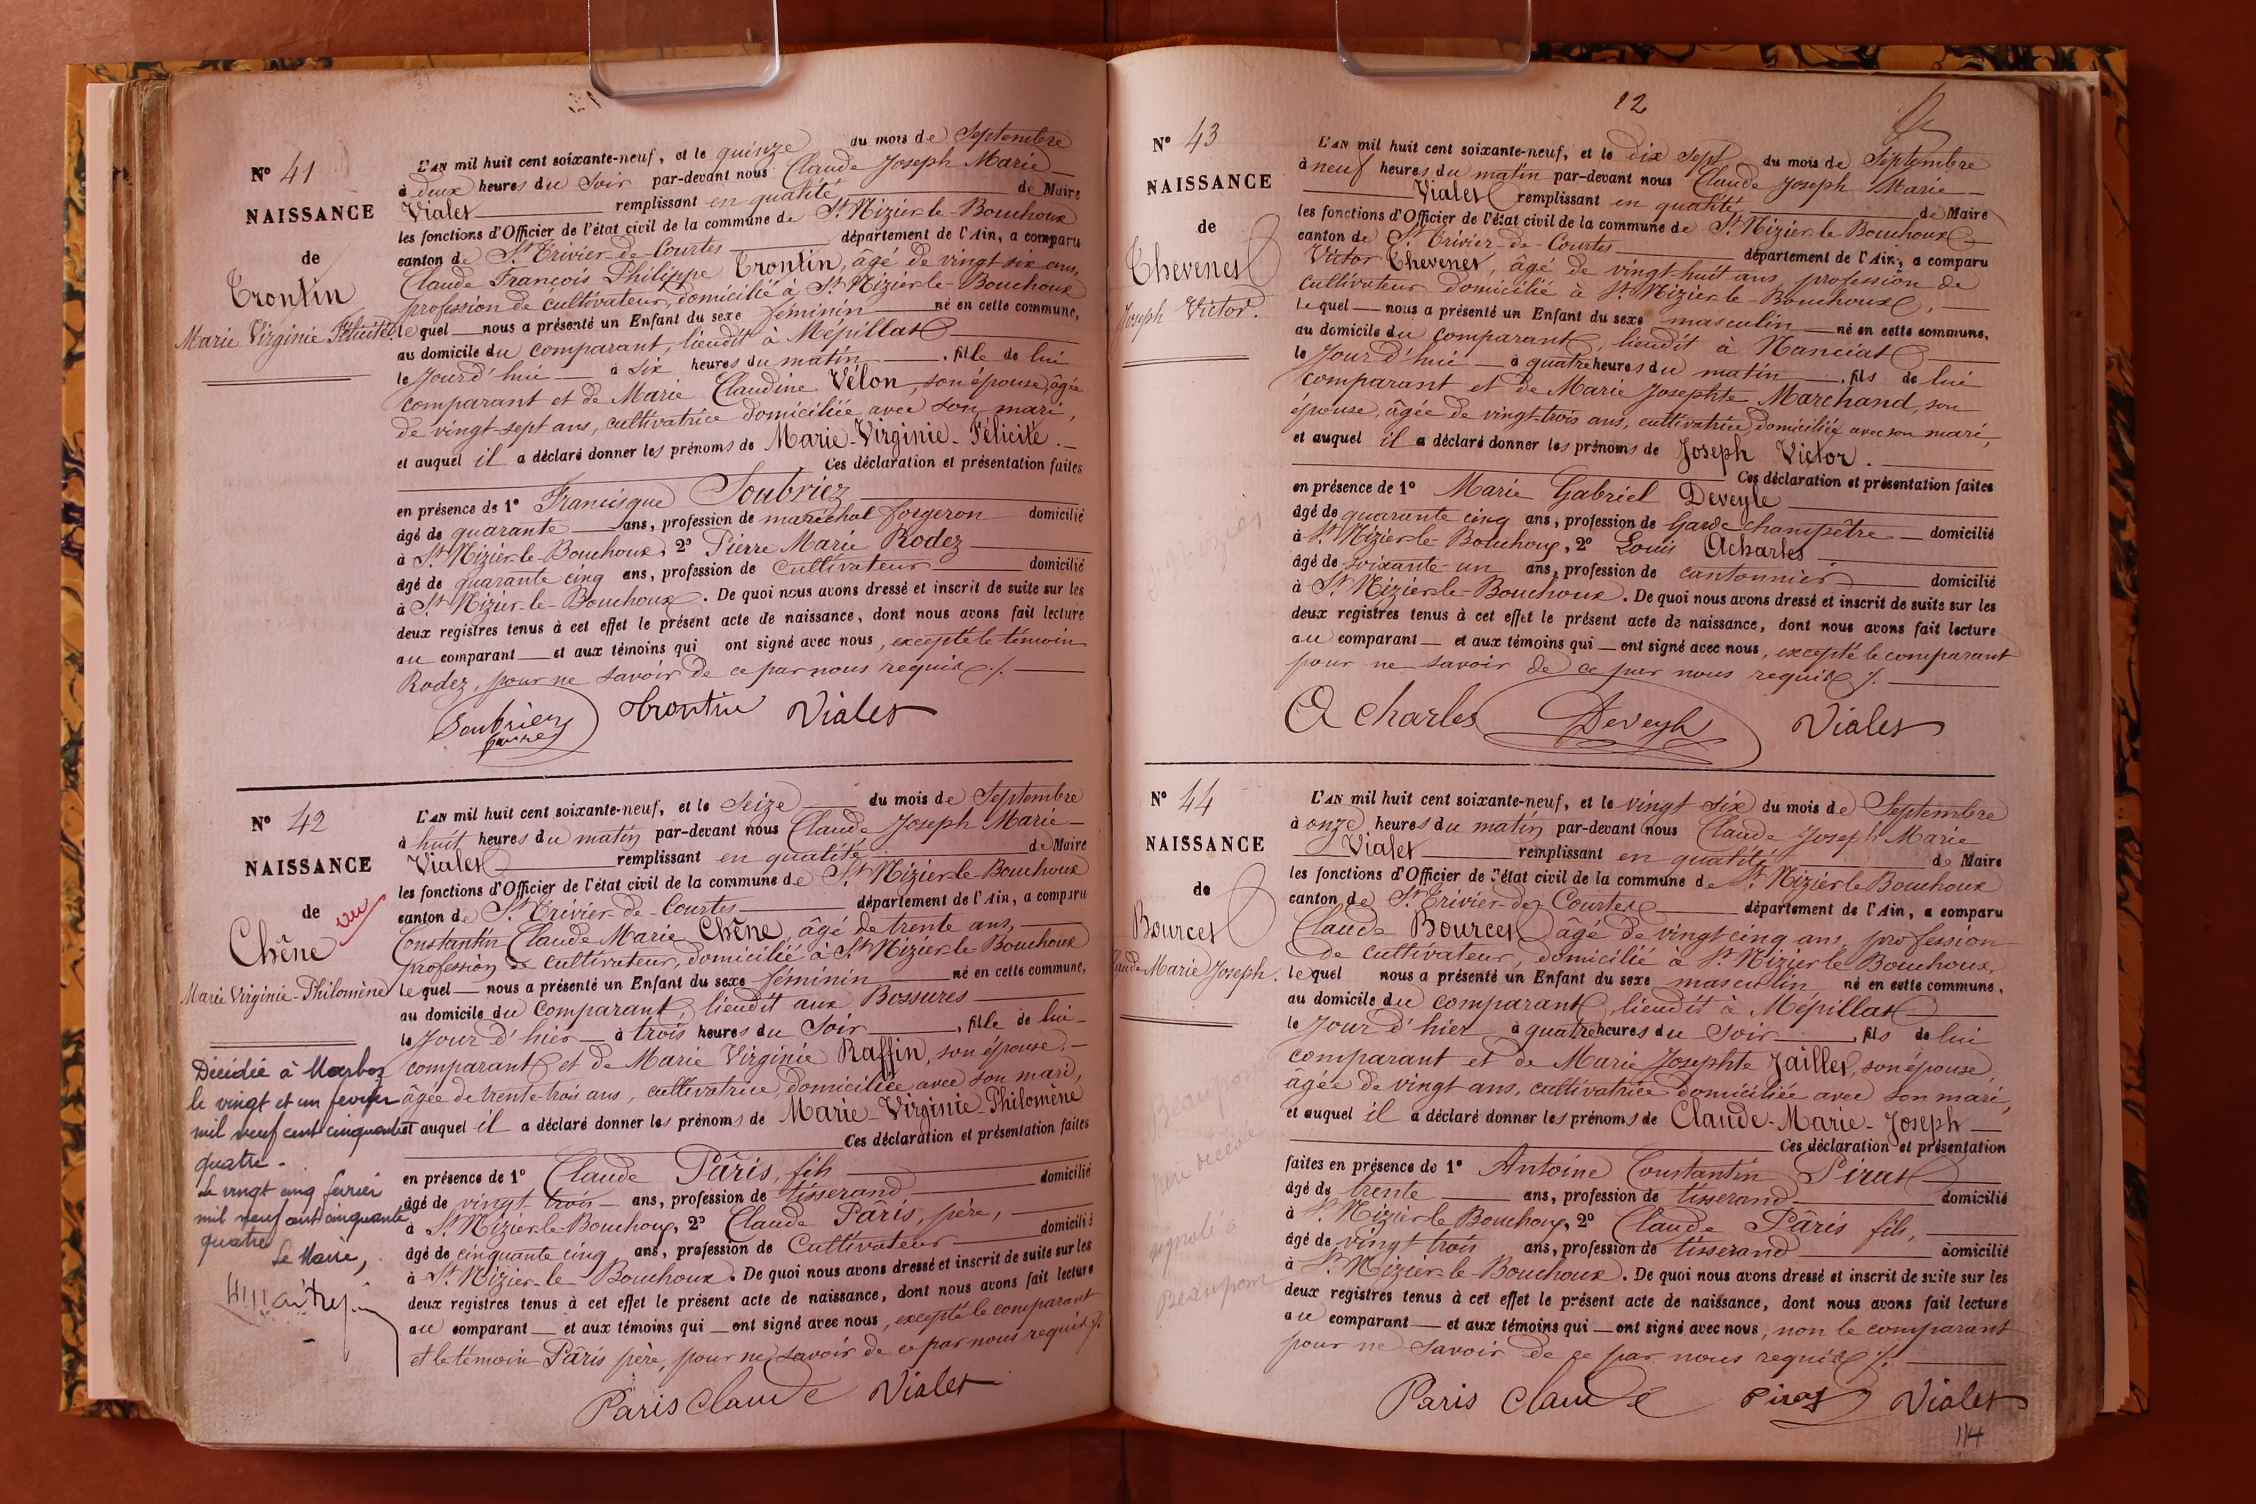 N° 41
NAISSANCE
de
Trontin
Marie Virginie Félicité
L'AN mil huit cent soixante-neuf, et le quinze du mois de Septembre
à deux heures du Soir par-devant nous Claude Joseph Marie
Vialet remplissant en qualité de Maire
les fonctions d'Officier de l'état civil de la commune de St Nizier-le-Bouchoux
canton de St Trivier-de-Courtes département de l'Ain, a comparu
Claude François Philippe Trontin, âgé de vingt six ans,
profession de cultivateur, domicilié à St Nizier-le-Bouchoux
lequel nous a présenté un Enfant du sexe féminin né en cette commune,
au domicile du comparant, lieudit à Mépillat
le Jour d'hui à six heures du matin, fille de lui
comparant et de Marie Claudine Vélon, son épouse, âgée
de vingt-sept ans, cultivatrice domiciliée avec son mari,
et auquel il a déclaré donner les prénoms de Marie-Virginie-Félicité.
Ces déclaration et présentation faites
en présence de 1° Francisque Soubriez
âgé de quarante ans, profession de maréchal forgeron domicilié
à St Nizier-le-Bouchoux, 2° Pierre Marie Rodez
âgé de quarante cinq ans, profession de cultivateur domicilié
à St Nizier-le-Bouchoux. De quoi nous avons dressé et inscrit de suite sur les
deux registres tenus à cet effet le présent acte de naissance, dont nous avons fait lecture
au comparant et aux témoins qui ont signé avec nous, excepté le témoin
Rodez, pour ne savoir de ce par nous requis ./.
Trontin Vialet
N° 42
NAISSANCE
de
vu
Chêne
Marie Virginie-Philomène
Décédée à Marboz
le vingt et un février
mil neuf cent cinquante
quatre.
Le vingt cinq février
mil neuf cent cinquante
quatre
Le Maire,
L'AN mil huit cent soixante-neuf, et le Seize du mois de Septembre
à huit heures du matin par-devant nous Claude Joseph Marie
Vialet remplissant en qualité de Maire
les fonctions d'Officier de l'état civil de la commune de St Nizier-le-Bouchoux
canton de St Trivier-de-Courtes département de l'Ain, a comparu
Constantin Claude Marie Chêne, âgé de trente ans,
profession de cultivateur, domicilié à St Nizier-le-Bouchoux
lequel nous a présenté un Enfant du sexe féminin né en cette commune,
au domicile du comparant, lieudit aux Bossures
le Jour d'hier à trois heures du Soir, fille de lui
comparant et de Marie Virginie Raffin, son épouse,
âgée de trente-trois ans, cultivatrice, domiciliée avec son mari,
et auquel il a déclaré donner les prénoms de Marie-Virginie-Philomène
Ces déclaration et présentation faites
en présence de 1° Claude Pâris, fils
âgé de vingt trois ans, profession de tisserand domicilié
à St Nizier-le-Bouchoux, 2° Claude Pâris, père,
âgé de cinquante cinq ans, profession de Cultivateur domicilié
à St Nizier-le-Bouchoux. De quoi nous avons dressé et inscrit de suite sur les
deux registres tenus à cet effet le présent acte de naissance, dont nous avons fait lecture
au comparant et aux témoins qui ont signé avec nous, excepté le comparant
et le témoin Pâris père, pour ne savoir de ce par nous requis ./.
Paris Claude Vialet
12
N° 43
NAISSANCE
de
Thevenet
Joseph Victor.
L'AN mil huit cent soixante-neuf, et le dix sept du mois de Septembre
à neuf heures du matin par-devant nous Claude Joseph Marie
Vialet remplissant en qualité de Maire
les fonctions d'Officier de l'état civil de la commune de St Nizier-le-Bouchoux
canton de St Trivier-de-Courtes département de l'Ain, a comparu
Victor Thevenet, âgé de vingt-huit ans, profession de
cultivateur domicilié à St Nizier-le-Bouchoux,
lequel nous a présenté un Enfant du sexe masculin né en cette commune,
au domicile du comparant, lieudit à Nanciat
le Jour d'hui à quatre heures du matin, fils de lui
comparant et de Marie Josephte Marchand, son
épouse, âgée de vingt-trois ans, cultivatrice, domiciliée avec son mari,
et auquel il a déclaré donner les prénoms de Joseph Victor.
Ces déclaration et présentation faites
en présence de 1° Marie Gabriel Deveyle
âgé de quarante cinq ans, profession de Garde champêtre domicilié
à St Nizier-le-Bouchoux, 2° Louis Acharles
âgé de soixante-un ans, profession de cantonnier domicilié
à St Nizier-le-Bouchoux. De quoi nous avons dressé et inscrit de suite sur les
deux registres tenus à cet effet le présent acte de naissance, dont nous avons fait lecture
au comparant et aux témoins qui ont signé avec nous, excepté le comparant
pour ne savoir de ce par nous requis ./.
A charles Deveyle Vialet
N° 44
NAISSANCE
de
Bourcet
Claude Marie Joseph.
L'AN mil huit cent soixante-neuf, et le vingt six du mois de Septembre
à onze heures du matin par-devant nous Claude Joseph Marie
Vialet remplissant en qualité de Maire
les fonctions d'Officier de l'état civil de la commune de St Nizier le Bouchoux
canton de St Trivier-de-Courtes département de l'Ain, a comparu
Claude Bourcet âgé de vingt cinq ans, profession
de cultivateur, domicilié à St Nizier le Bouchoux,
lequel nous a présenté un Enfant du sexe masculin né en cette commune,
au domicile du comparant, lieudit à Mépillat
le Jour d'hier à quatre heures du Soir, fils de lui
comparant et de Marie Josephte Jaillet, son épouse
âgée de vingt ans, cultivatrice domiciliée avec son mari,
et auquel il a déclaré donner les prénoms de Claude-Marie-Joseph
Ces déclaration et présentation
faites en présence de 1° Antoine Constantin Pirat
âgé de trente ans, profession de tisserand domicilié
à St Nizier le Bouchoux, 2° Claude Pâris fils,
âgé de vingt trois ans, profession de tisserand domicilié
à St Nizier-le-Bouchoux. De quoi nous avons dressé et inscrit de suite sur les
deux registres tenus à cet effet le présent acte de naissance, dont nous avons fait lecture
au comparant et aux témoins qui ont signé avec nous, non le comparant
pour ne savoir de ce par nous requis ./.
Paris Claude Pirat Vialet